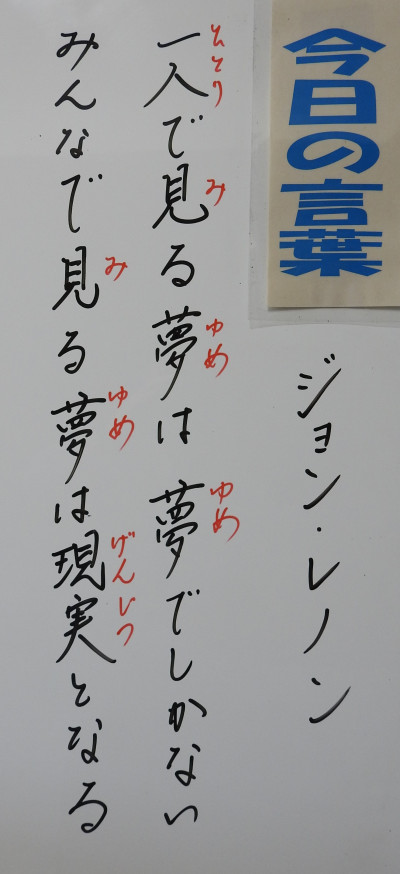 今日の言葉
ジョン・レノン
ひとり み ゆめ ゆめ
一人で見る夢は 夢でしかない
み ゆめ げんじつ
みんなで見る夢は現実となる